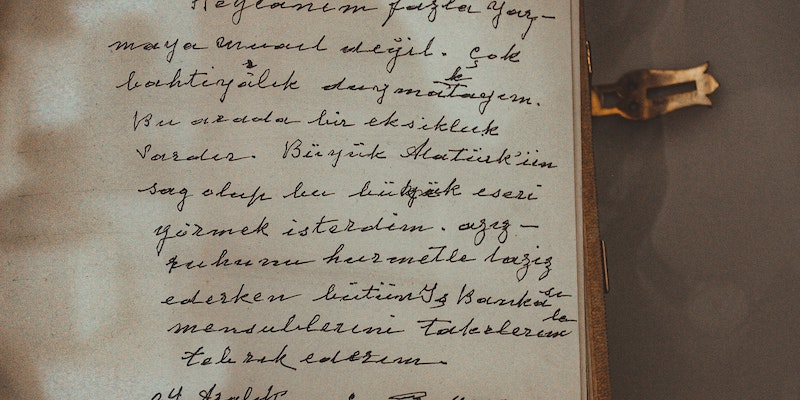 Heyecanım fazla yaz-
maya müsait değil. Çok
bahtiyarlık duymaktayım.
Bu arada bir eksiklik
vardır. Büyük Atatürk'ün
sağ olup bu büyük eseri
görmek isterdim. Aziz
ruhunu hürmetle taziz
ederken bütün İş Bankası
mensublarını takdirlerimle
tebrik ederim.
24 Aralık